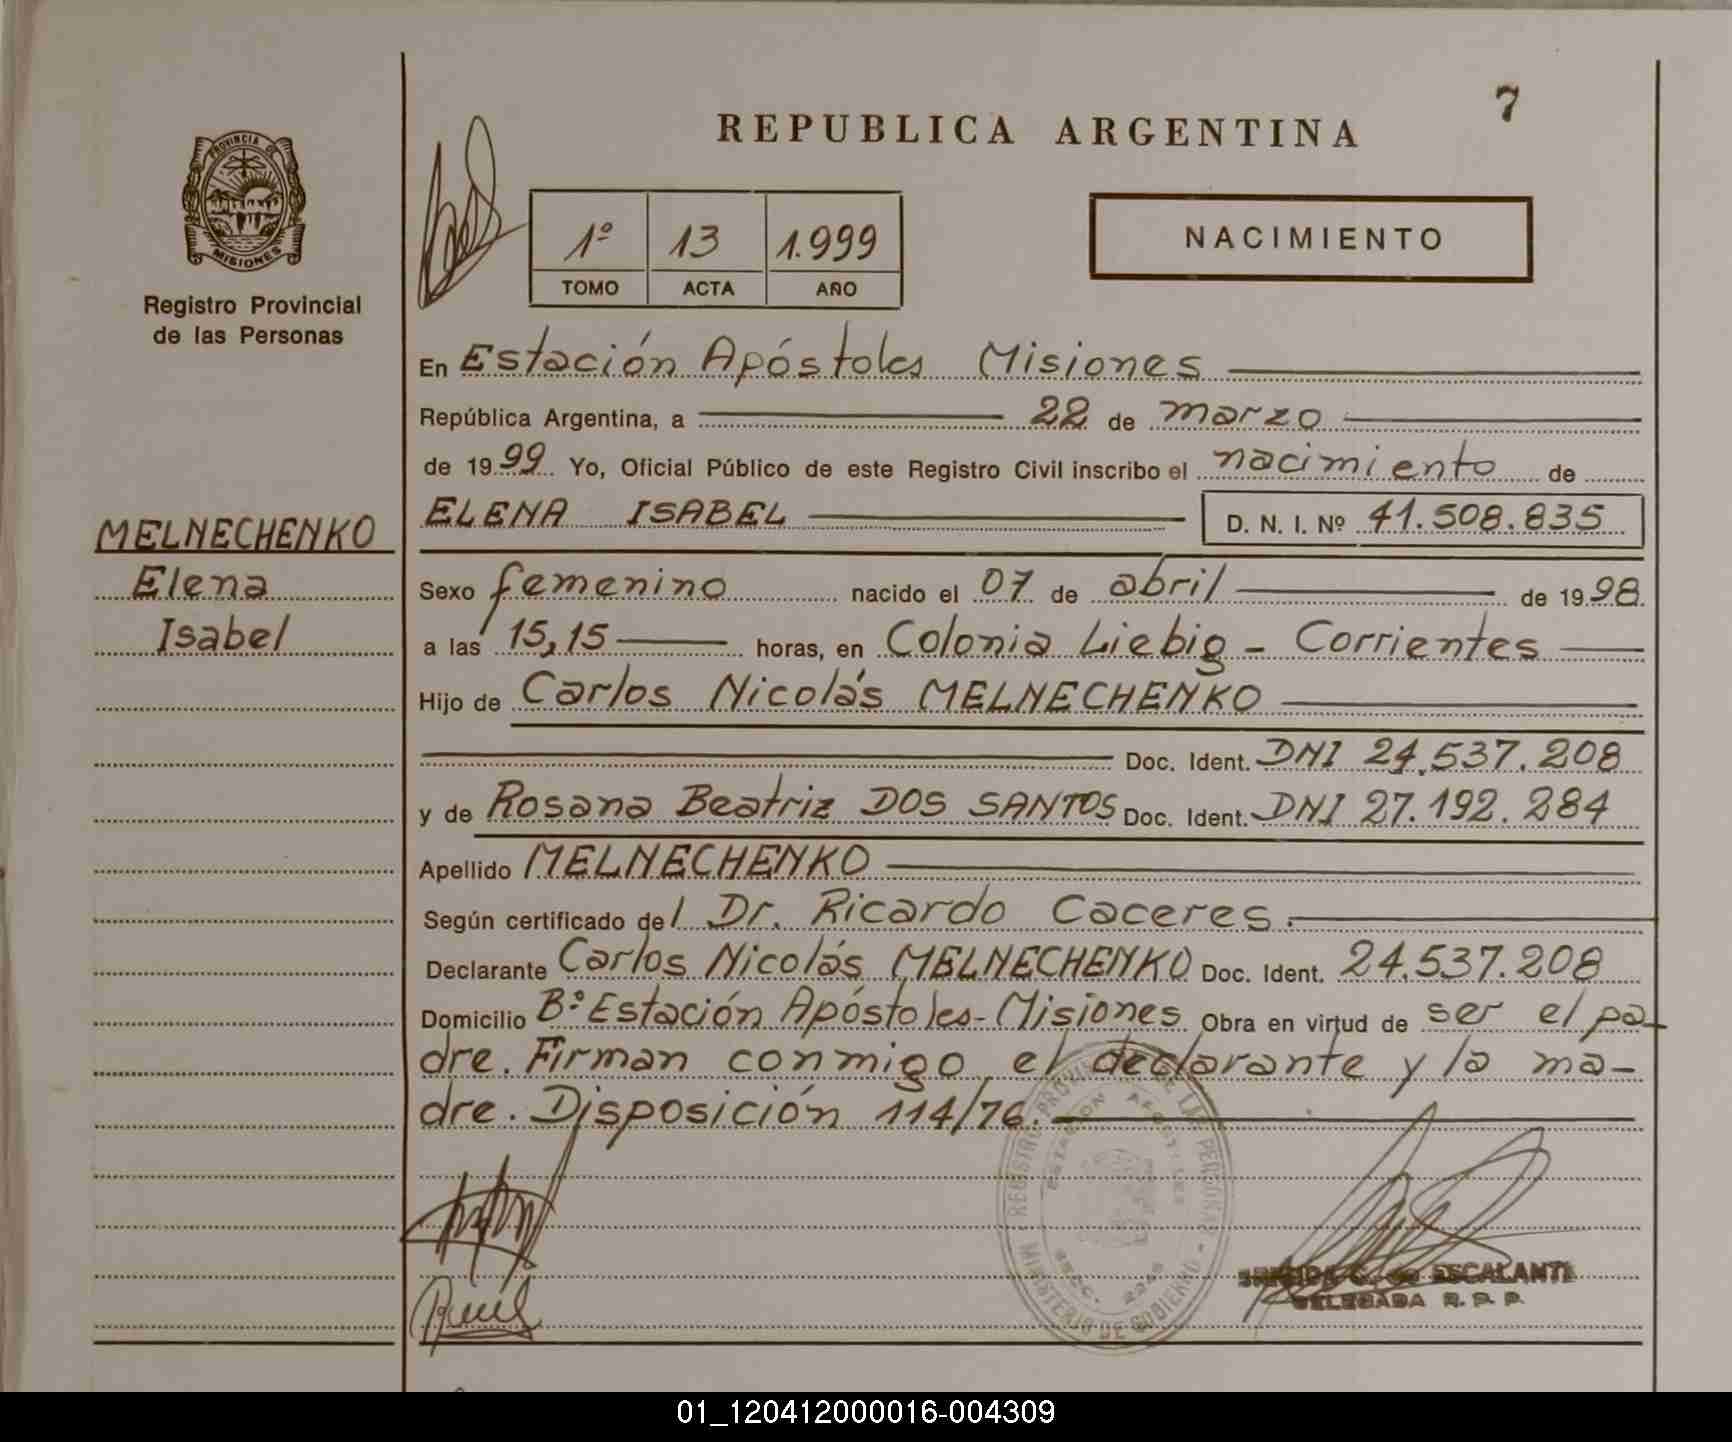 7
REPUBLICA ARGENTINA
PROVINCIA DE
MISIONES
Registro Provincial
de las Personas
1º 13 1.999
TOMO ACTA AÑO
NACIMIENTO
En Estación Apóstoles Misiones
República Argentina, a 22 de marzo
de 1999 Yo, Oficial Público de este Registro Civil inscribo el nacimiento de
ELENA ISABEL D. N. I. Nº 41.508.835
MELNECHENKO
Elena
Isabel
Sexo femenino nacido el 07 de abril de 1998
a las 15,15 horas, en Colonia Liebig - Corrientes
Hijo de Carlos Nicolás MELNECHENKO
Doc. Ident. DNI 24.537.208
y de Rosana Beatriz DOS SANTOS Doc. Ident. DNI 27.192.284
Apellido MELNECHENKO
Según certificado del Dr. Ricardo Caceres.
Declarante Carlos Nicolás MELNECHENKO Doc. Ident. 24.537.208
Domicilio Bº Estación Apóstoles - Misiones Obra en virtud de ser el pa-
dre. Firman conmigo el declarante y la ma-
dre. Disposición 114/76.
REGISTRO PROVINCIAL DE LAS PERSONAS - MINISTERIO DE GOBIERNO
ESTACION APOSTOLES
SECC. 2245
C. de ESCALANTE
DELEGADA R. P. P.
01_120412000016-004309